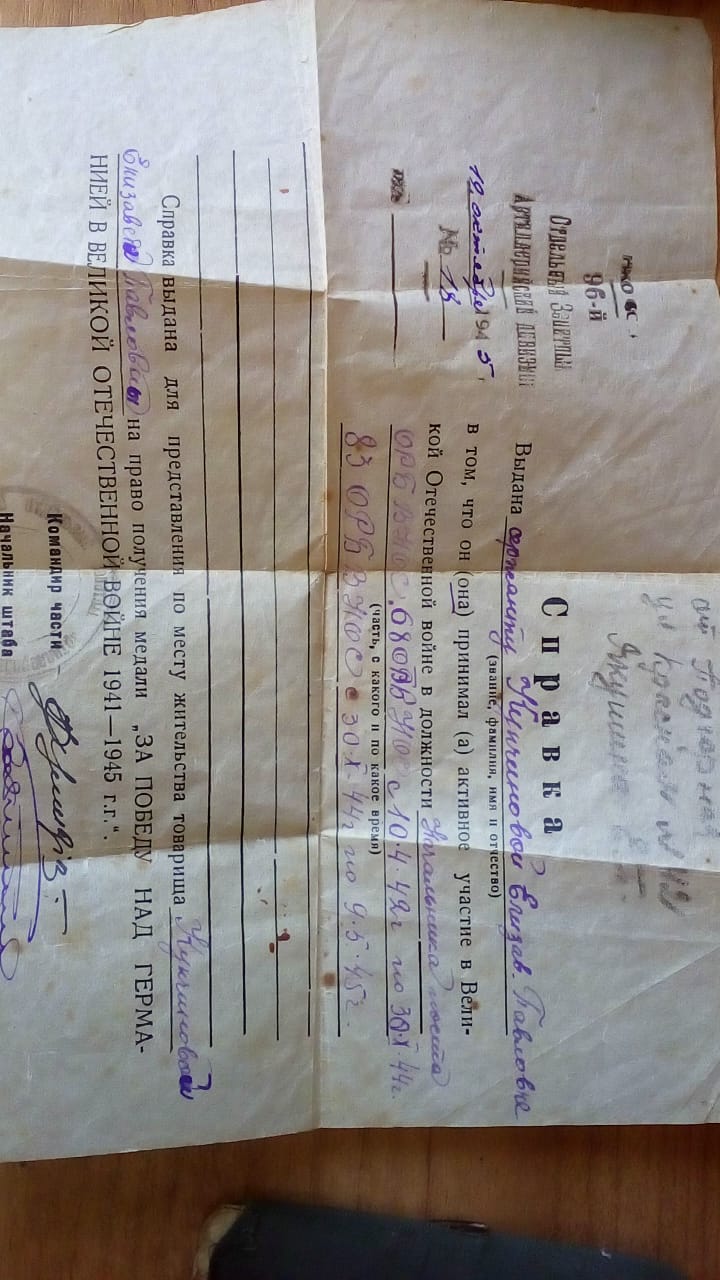 96-й
Отдельный Зенитный
Артиллерийский дивизион
19 октября 1945,
№ 18
Справка
Выдана сержанту Кунчиновой Елизав. Павловне
(звание, фамилия, имя и отчество)
в том, что он (она) принимал (а) активное участие в Вели-
кой Отечественной войне в должности Начальника поста
ОРБ ВНОС с 10.4.42г по 30.X.44г.
(часть, с какого и по какое время)
83 ОРБ ВНОС с 30.X.44г по 9.5.45г.
Справка выдана для представления по месту жительства товарища Кунчиновой
Елизавета Павловны на право получения медали „ЗА ПОБЕДУ НАД ГЕРМА-
НИЕЙ В ВЕЛИКОЙ ОТЕЧЕСТВЕННОЙ ВОЙНЕ 1941—1945 г.г.“.
Командир части
Начальник штаба